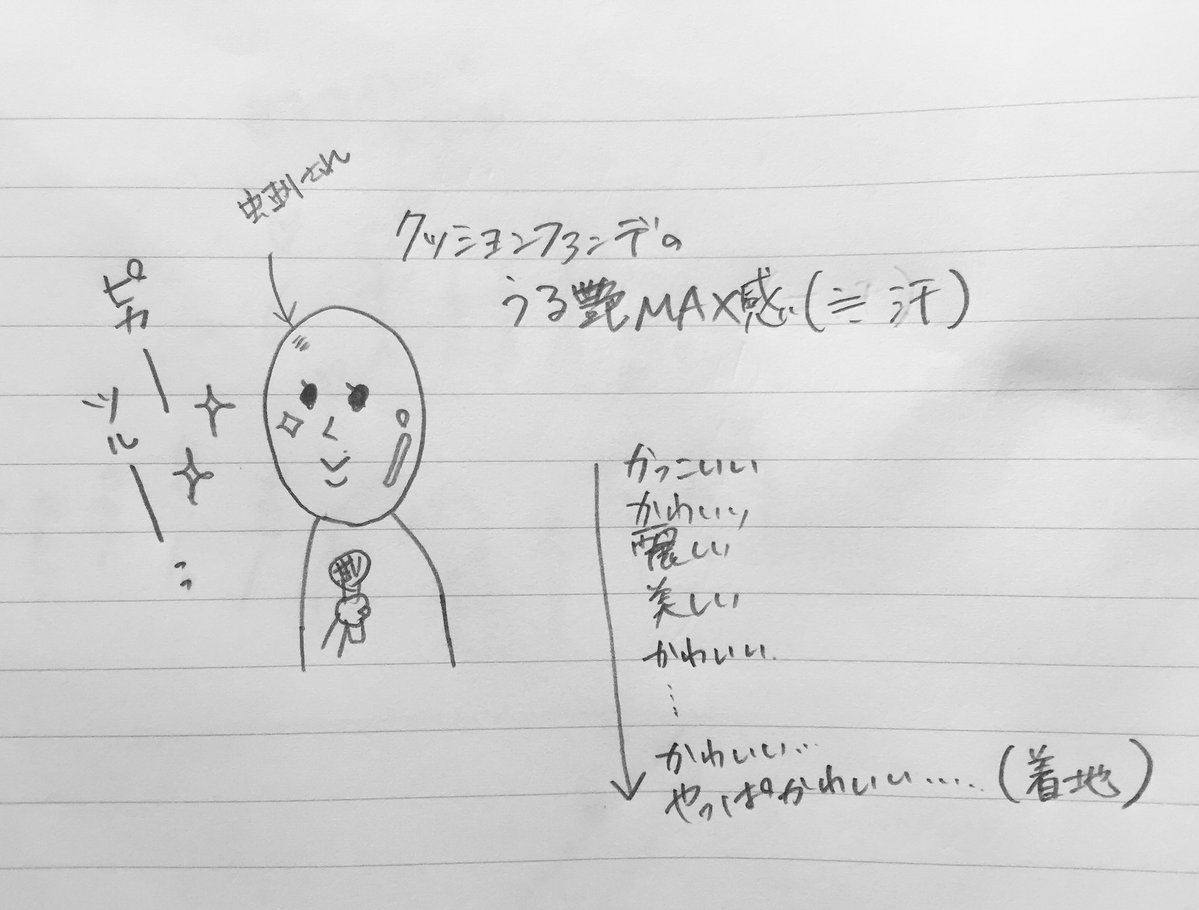 虫刺され
クッションファンデの
うる艶MAX感(≒汗)
ピカー
ツルーッ
かっこいい
かわいい
麗しい
美しい
かわいい
⋮
かわいい…
やっぱかわいい……(着地)